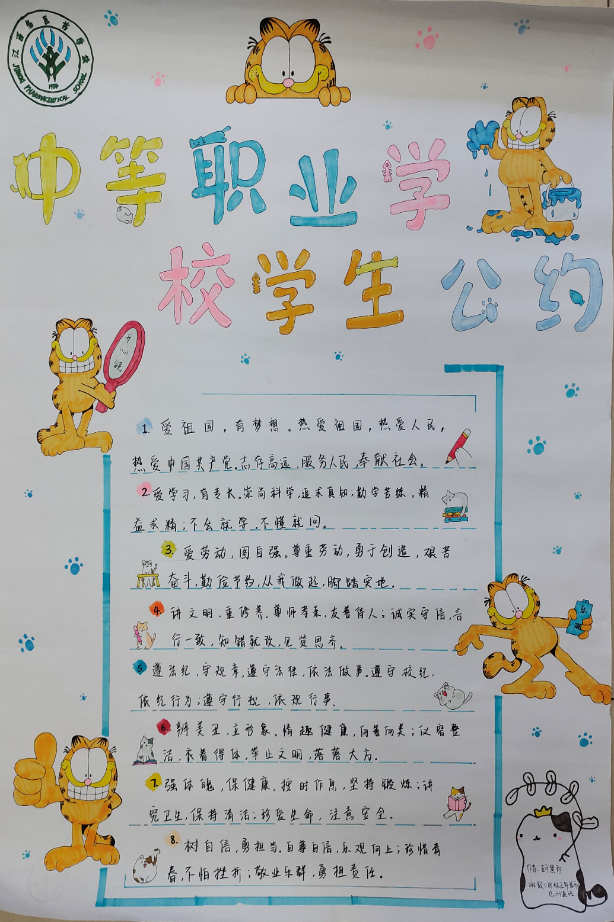 江西省医药学校
JIANGXI PHARMACEUTICAL SCHOOL
中等职业学
校学生公约
开心镜
1. 爱祖国，有梦想。热爱祖国，热爱人民，
热爱中国共产党。志存高远，服务人民，奉献社会。
2. 爱学习，有专长。崇尚科学，追求真知；勤学苦练，精
益求精；不会就学，不懂就问。
3. 爱劳动，图自强。尊重劳动，勇于创造，艰苦
奋斗，勤俭节约，从我做起，脚踏实地。
4. 讲文明，重修养。尊师孝亲，友善待人；诚实守信，言
行一致，知错就改，见贤思齐。
5. 遵法纪，守规章，遵守法律，依法做事，遵守校纪，
依纪行为，遵守行规，依规行事。
6. 辨美丑，立形象。情趣健康，向善向美；仪容整
洁，衣着得体，举止文明，落落大方。
7. 强体魄，保健康。按时作息，坚持锻炼；讲
究卫生，保持清洁；珍爱生命，注意安全。
8. 树自信，勇担当，自尊自信，乐观向上；珍惜青
春，不怕挫折；敬业乐群，勇担责任。
作者：
班级：